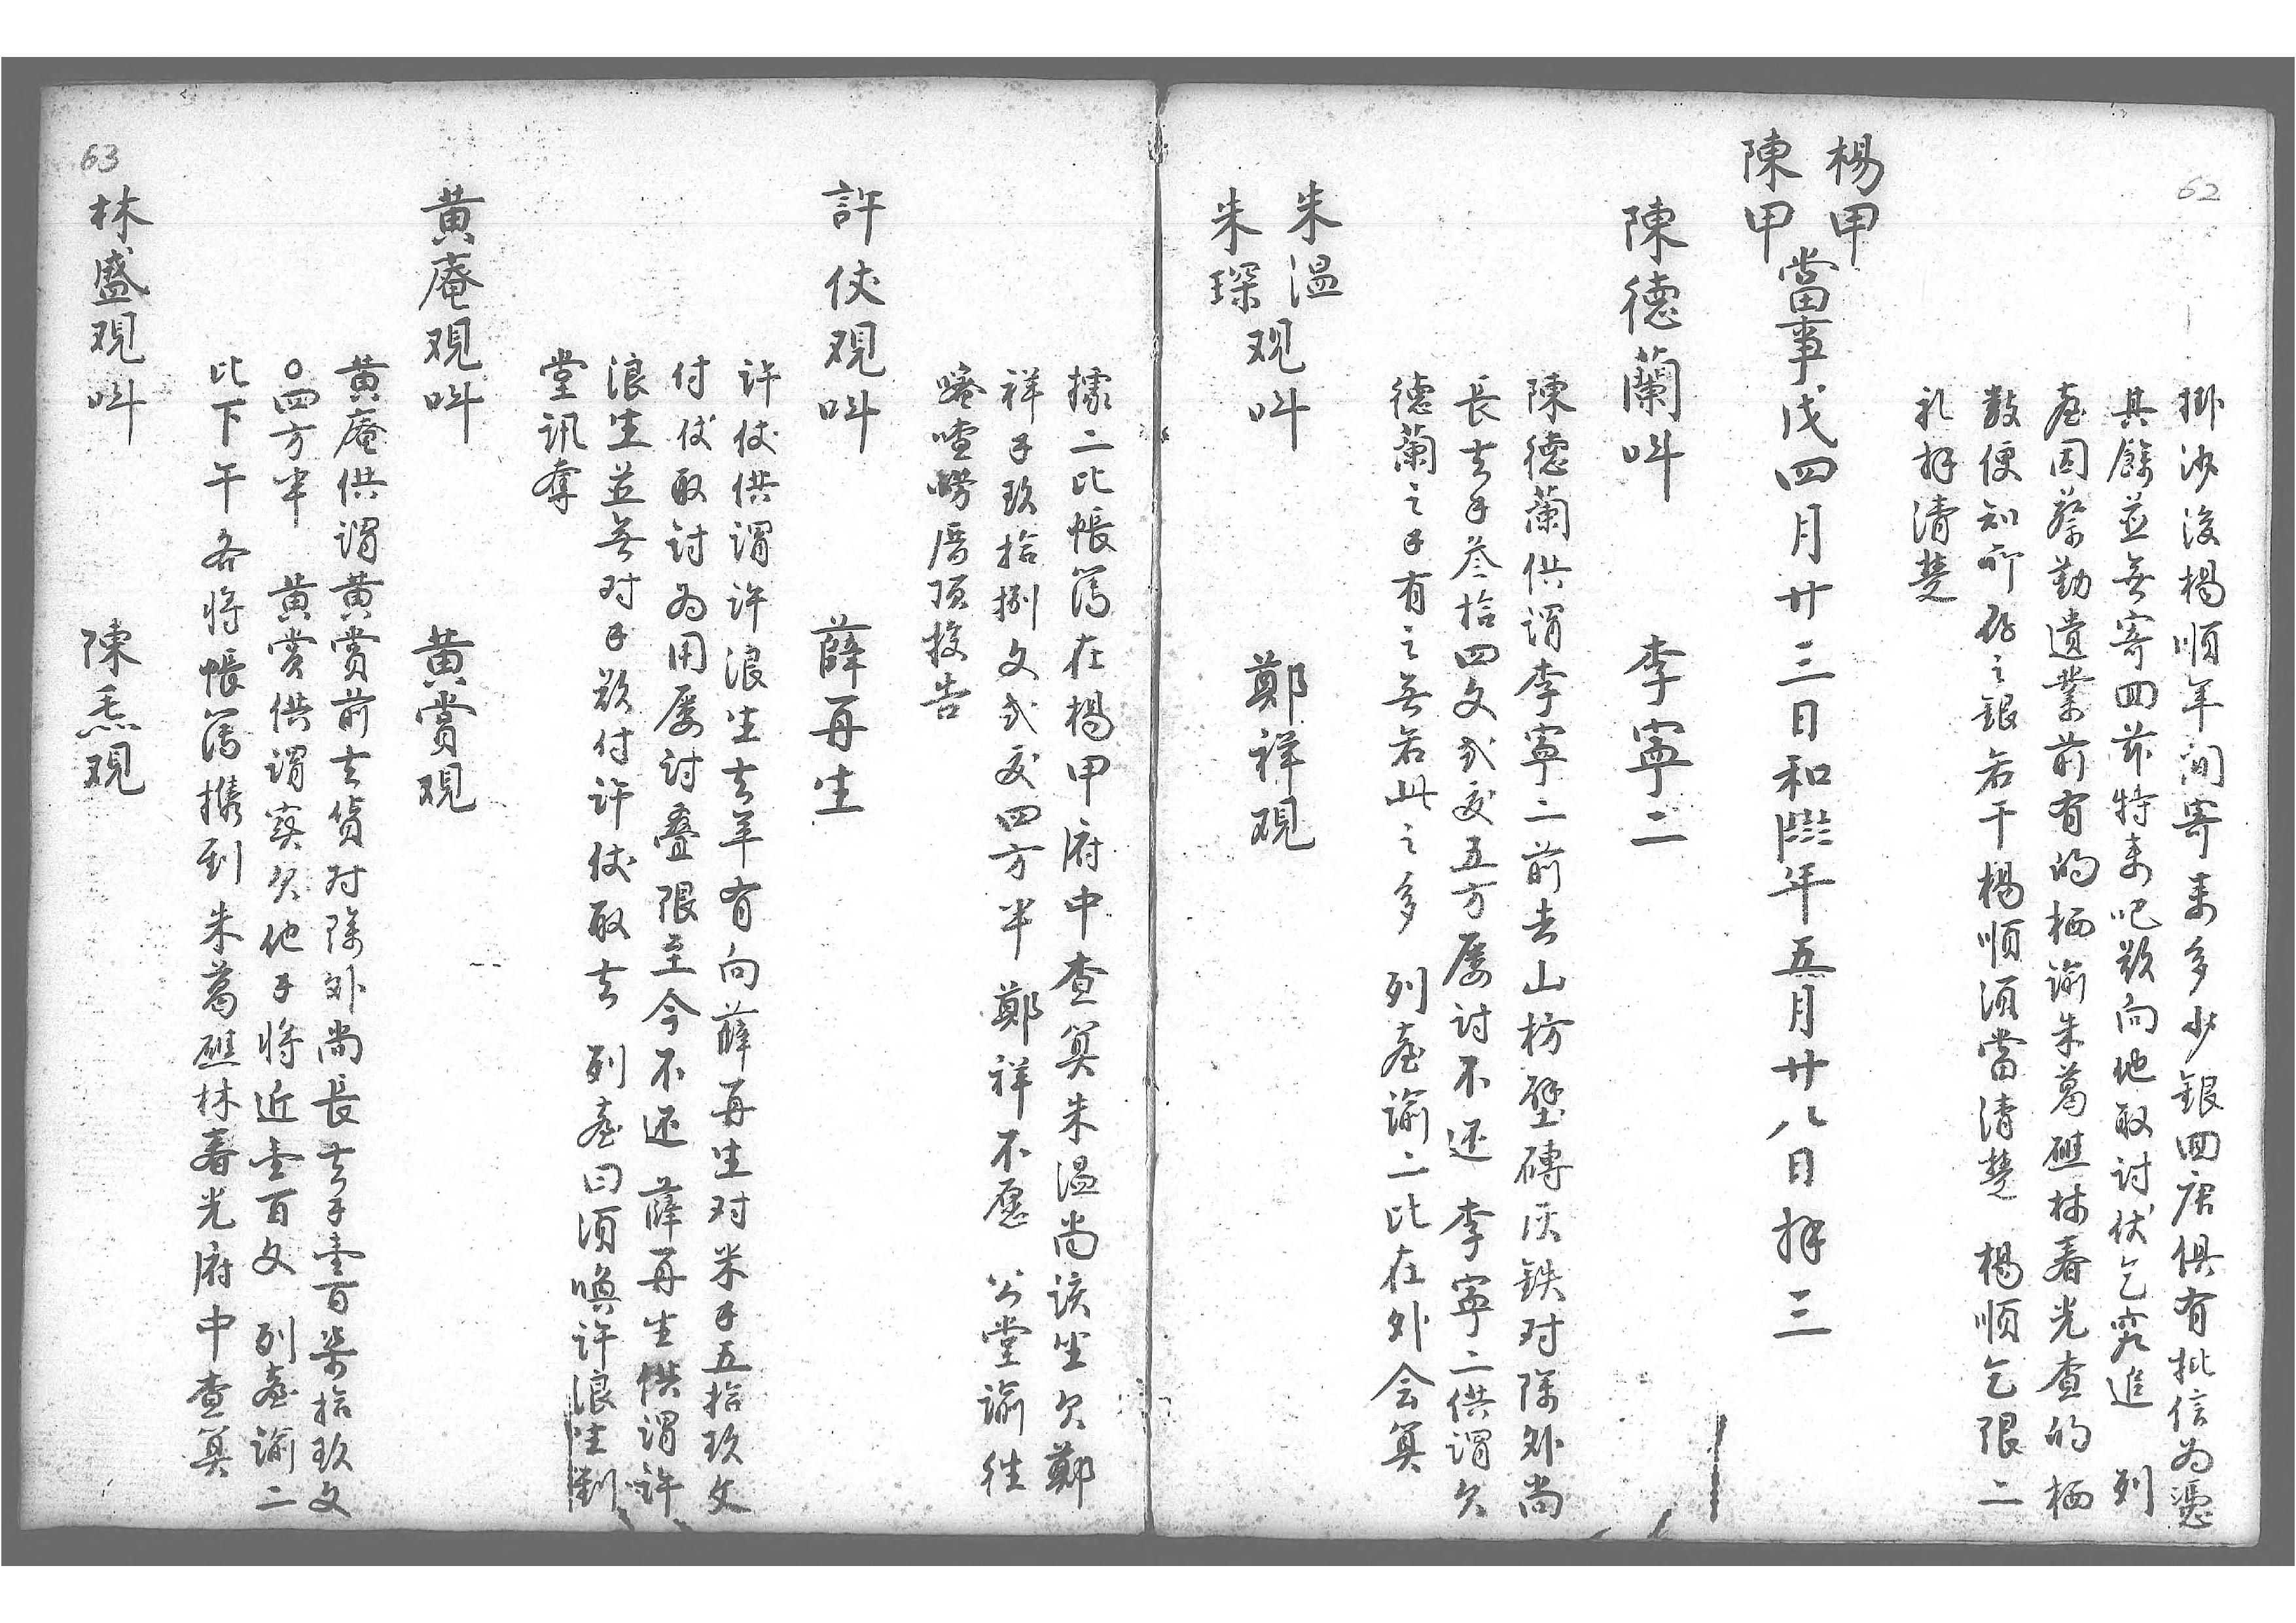 62
掷沙浚楊順年间寄来多少銀回唐俱有批信為憑
其餘並無寄回茲特来吧欵向他取討伏乞䆒追 列
臺因蔡勤遺業前有的栖諭朱葛礁林春光查的栖
数便知所存之銀若干楊順須當清楚 楊順乞限二
礼拜清楚
楊甲
陳甲
當事戊四月廿三日和年五月廿八日拜三
陳德蘭叫 李寧二
陳德蘭供謂李寧二前去山枋壁磚灰鉄对除外尚
長去手叁拾四文弍孛五方屡討不还 李寧二供謂欠
德蘭之手有之無若此之多 列臺諭二比在外会算
朱温
朱琛
观叫 鄭祥观
據二比帳簿在楊甲府中查算朱温尚該坐欠鄭
祥手玖拾捌文弍孛四方半 鄭祥不愿 公堂諭往
唵喳嘮厝頂投告
許伩观叫 薛再生
许伩供謂许浪生去羊有向薛再生对米手五拾玖文
付伩取討為用屡討叠限至今不还 薛再生供謂许
浪生並無对手欵付许伩取去 列臺曰須喚许浪生到
堂訊奪
黄庵观叫 黄賞观
黄庵供謂黄賞前去貨对除外尚長去手壹百柒拾玖文
〇四方半 黄賞供謂寔欠他手将近壹百文 列臺諭二
比下午各将帳簿携到朱葛礁林春光府中查算
63
林盛观叫 陳𤆬观